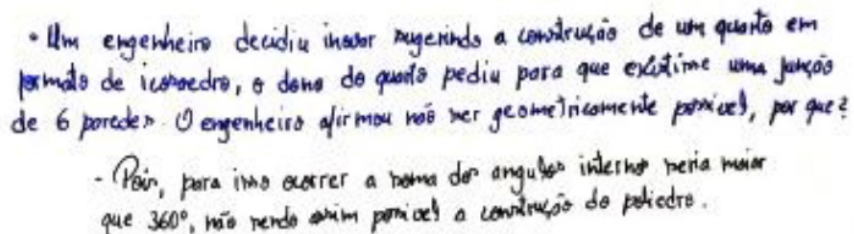 • Um engenheiro decidiu inovar sugerindo a construção de um quarto em
formato de icosaedro, o dono do quarto pediu para que existisse uma junção
de 6 paredes. O engenheiro afirmou não ser geometricamente possível, por que?
- Pois, para isso ocorrer a soma dos angulos internos seria maior
que 360°, não sendo assim possivel a construção do poliedro.